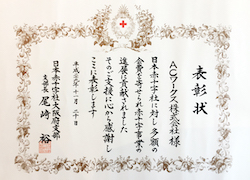 表彰状
ACワークス株式会社様
日本赤十字社に対し多額の
会費を寄せられ赤十字事業の
進展に貢献されました
そのご支援に心から感謝し
ここに表彰します
平成三十年十一月二十日
日本赤十字社大阪府支部
支部長 尾﨑 裕